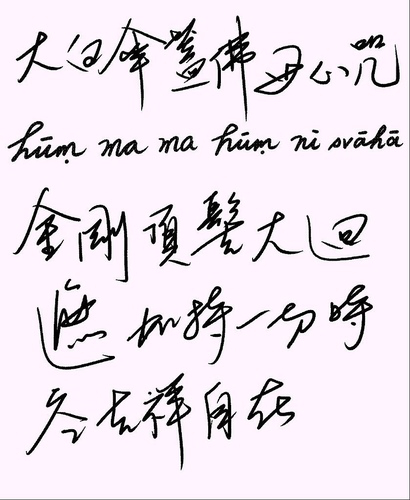 大白傘蓋佛母心咒
hūṃ ma ma hūṃ ni svāhā
金剛頂髻大迴
遮加持一切時
令吉祥自在